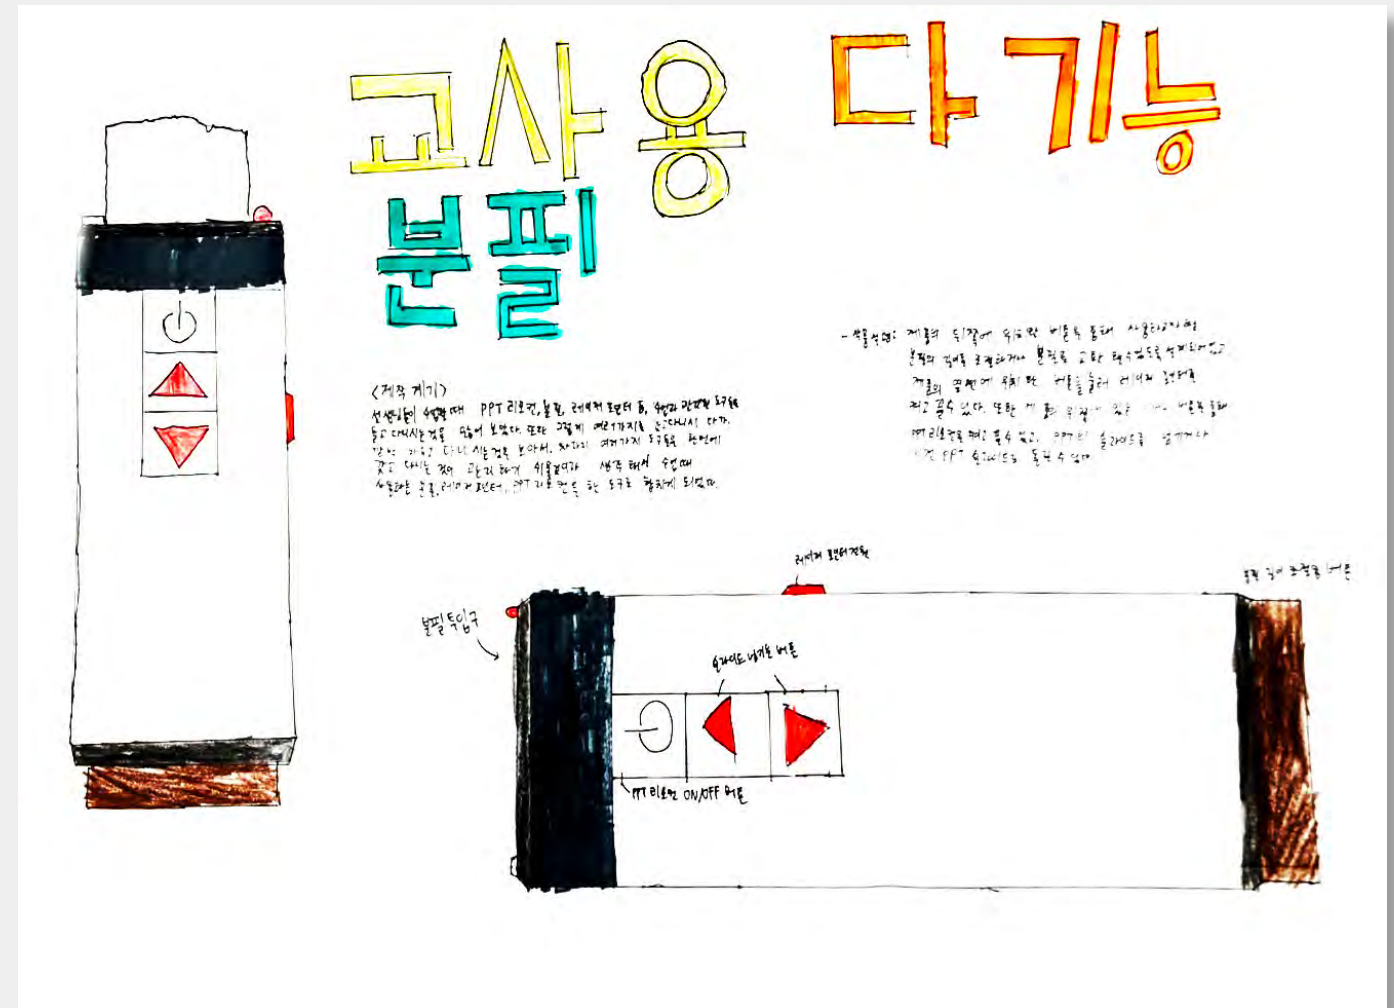 교사용 다기능
분필
<제작 계기>
선생님들이 수업할때 PPT 리모컨, 분필, 레이저 포인터 등, 수업과 관련된 도구들을
들고 다니시는것을 보았다. 또한 그렇게 여러가지를 들고다니시 다가,
다니 시는것을 보아서, 차라리 여러가지 도구들을 한번에
갖고 다니는 것이 관리하기 쉬울것이라 생각해서 수업때
사용하는 분필, 레이저 포인터, PPT 리모컨을 한 도구로 합치게 되었다.
- 작품설명: 제품의 뒤쪽에 위치한 버튼을 통해 사용하고자 하는
분필의 길이를 조절하거나 분필을 교환 할수있도록 설계되어있고
제품의 옆면에 위치한 버튼을 눌러 레이저 포인터를
켜고 끌수 있다. 또한 제품의 위쪽에 있는 버튼을 통해
PPT 리모컨을 켜고 끌수 있고, PPT의 슬라이드를 넘기거나
PPT 슬라이드로 돌릴 수 있다
레이저 포인터 전원
분필 길이 조절용 버튼
분필 투입구
슬라이드 넘기는 버튼
PPT 리모컨 ON/OFF 버튼